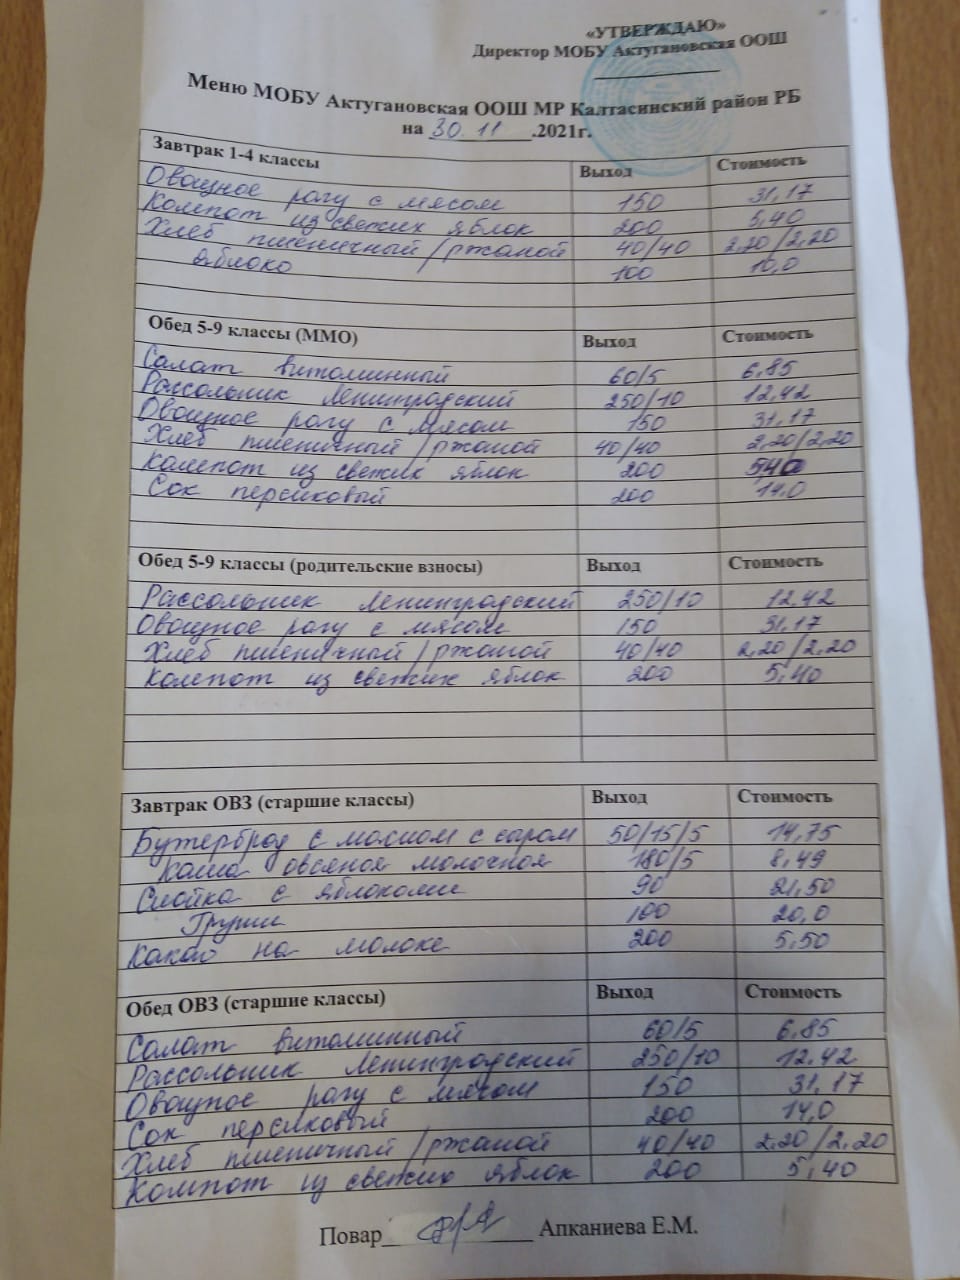 «УТВЕРЖДАЮ»
Директор МОБУ Актугановская ООШ
Меню МОБУ Актугановская ООШ МР Калтасинский район РБ
на 30.11 .2021г.
Завтрак 1-4 классы Выход Стоимость
Овощное рагу с мясом 150 31,17
Компот из свежих яблок 200 5,40
Хлеб пшеничный/ржаной 40/40 2,20/2,20
яблоко 100 10,0
Обед 5-9 классы (ММО) Выход Стоимость
Салат витаминный 60/5 6,85
Рассольник Ленинградский 250/10 12,42
Овощное рагу с мясом 150 31,17
Хлеб пшеничный/ржаной 40/40 2,20/2,20
Компот из свежих яблок 200 5,40
Сок персиковый 200 14,0
Обед 5-9 классы (родительские взносы) Выход Стоимость
Рассольник Ленинградский 250/10 12,42
Овощное рагу с мясом 150 31,17
Хлеб пшеничный/ржаной 40/40 2,20/2,20
Компот из свежих яблок 200 5,40
Завтрак ОВЗ (старшие классы) Выход Стоимость
Бутерброд с маслом с сыром 50/15/5 14,75
Каша овсяная молочная 180/5 8,49
Слойка с яблоками 90 21,50
Груши 100 20,0
Какао на молоке 200 5,50
Обед ОВЗ (старшие классы) Выход Стоимость
Салат витаминный 60/5 6,85
Рассольник Ленинградский 250/10 12,42
Овощное рагу с мясом 150 31,17
Сок персиковый 200 14,0
Хлеб пшеничный/ржаной 40/40 2,20/2,20
Компот из свежих яблок 200 5,40
Повар Апканиева Е.М.